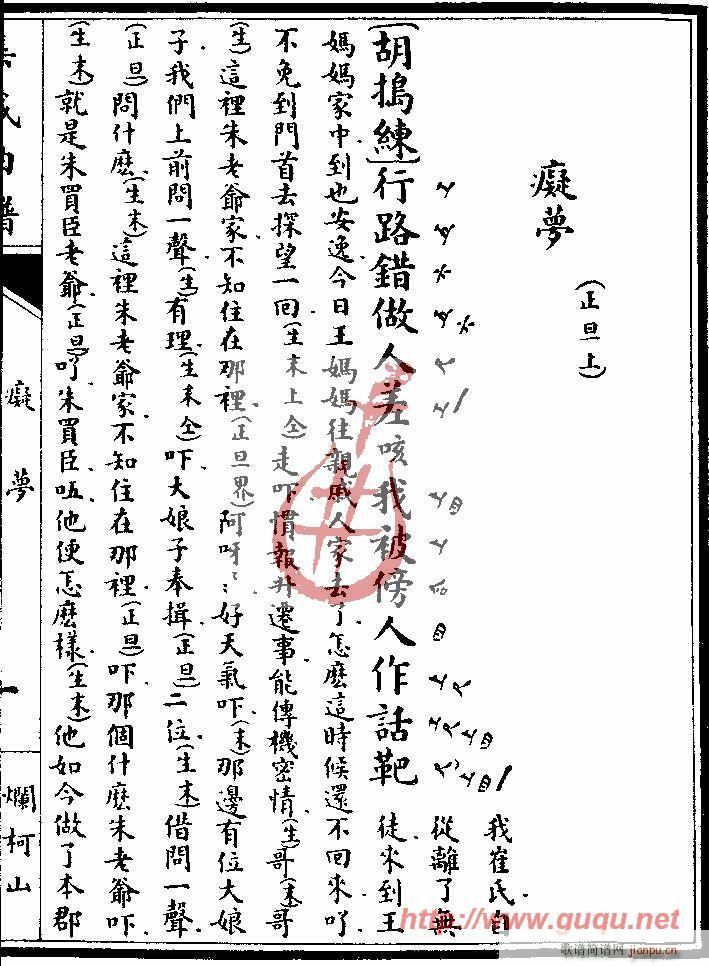 癡夢
(正旦上)
我崔氏自
從離了無
徒來到王
(胡搗練)行路錯做人差咳我被傍人作話靶
媽媽家中到也安逸今日王媽媽往親戚人家去了怎麽這時候還不回來吖
不免到門首去探望一回(生末上仝)走吓慣報升遷事能傳機密情(生)哥(末)哥
(生)這裡朱老爺家不知住在那裡(正旦界)阿呀〻好天氣吓(末)那邊有位大娘
子我們上前問一聲(生)有理(生末仝)吓大娘子奉揖(正旦)二位(生末)借問一聲
(正旦)問什麽(生末)這裡朱老爺家不知住在那裡(正旦)吓那個什麽朱老爺吓
(生末)就是朱買臣老爺(正旦)吖朱買臣㕶他便怎麽樣(生末)他如今做了本郡
集成曲譜
癡夢
一
爛柯山
http://www.guqu.net
歌谱简谱网
jianpu.cn